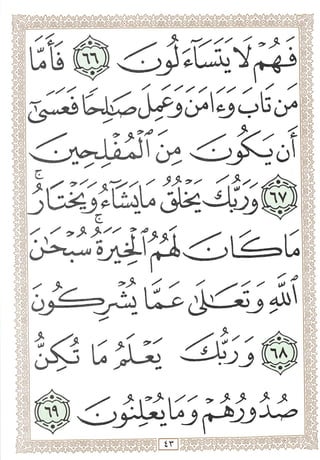 فَهُمۡ لَا يَتَسَآءَلُونَ ٦٦ فَأَمَّا
مَن تَابَ وَءَامَنَ وَعَمِلَ صَٰلِحٗا فَعَسَىٰٓ
أَن يَكُونَ مِنَ ٱلۡمُفۡلِحِينَ
٦٧ وَرَبُّكَ يَخۡلُقُ مَا يَشَآءُ وَيَخۡتَارُۗ
مَا كَانَ لَهُمُ ٱلۡخِيَرَةُۚ سُبۡحَٰنَ
ٱللَّهِ وَتَعَٰلَىٰ عَمَّا يُشۡرِكُونَ
٦٨ وَرَبُّكَ يَعۡلَمُ مَا تُكِنُّ
صُدُورُهُمۡ وَمَا يُعۡلِنُونَ ٦٩
٤٣